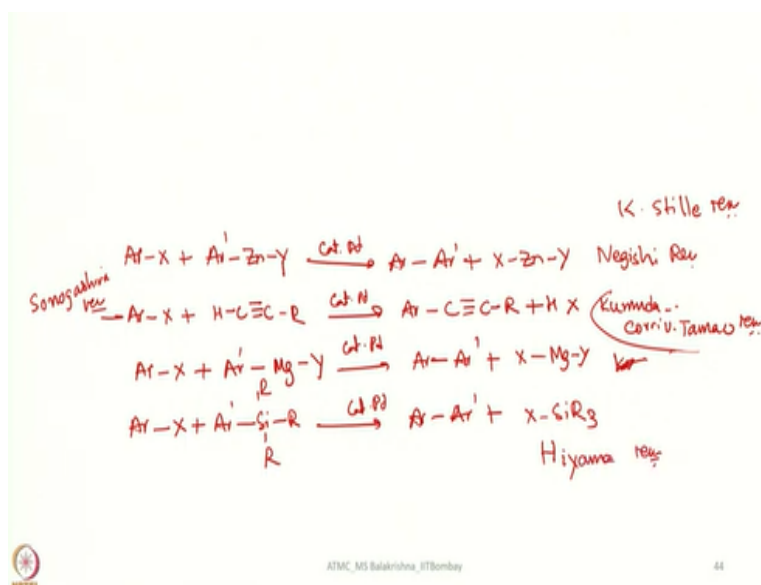 K. Stille ren
Ar-X + Ar'-Zn-Y Cat. Pd Ar-Ar' + X-Zn-Y Negishi Ren
Sonogashira ren Ar-X + H-C≡C-R Cat. Pd Ar-C≡C-R + HX Kumuda-.. Corriu. Tamao ren
Ar-X + Ar'-Mg-Y Cat. Pd Ar-Ar' + X-Mg-Y
R
Ar-X + Ar'-Si-R Cat. Pd Ar-Ar' + X-SiR3
R
Hiyama ren
ATMC_MS Balakrishna_IITBombay 44